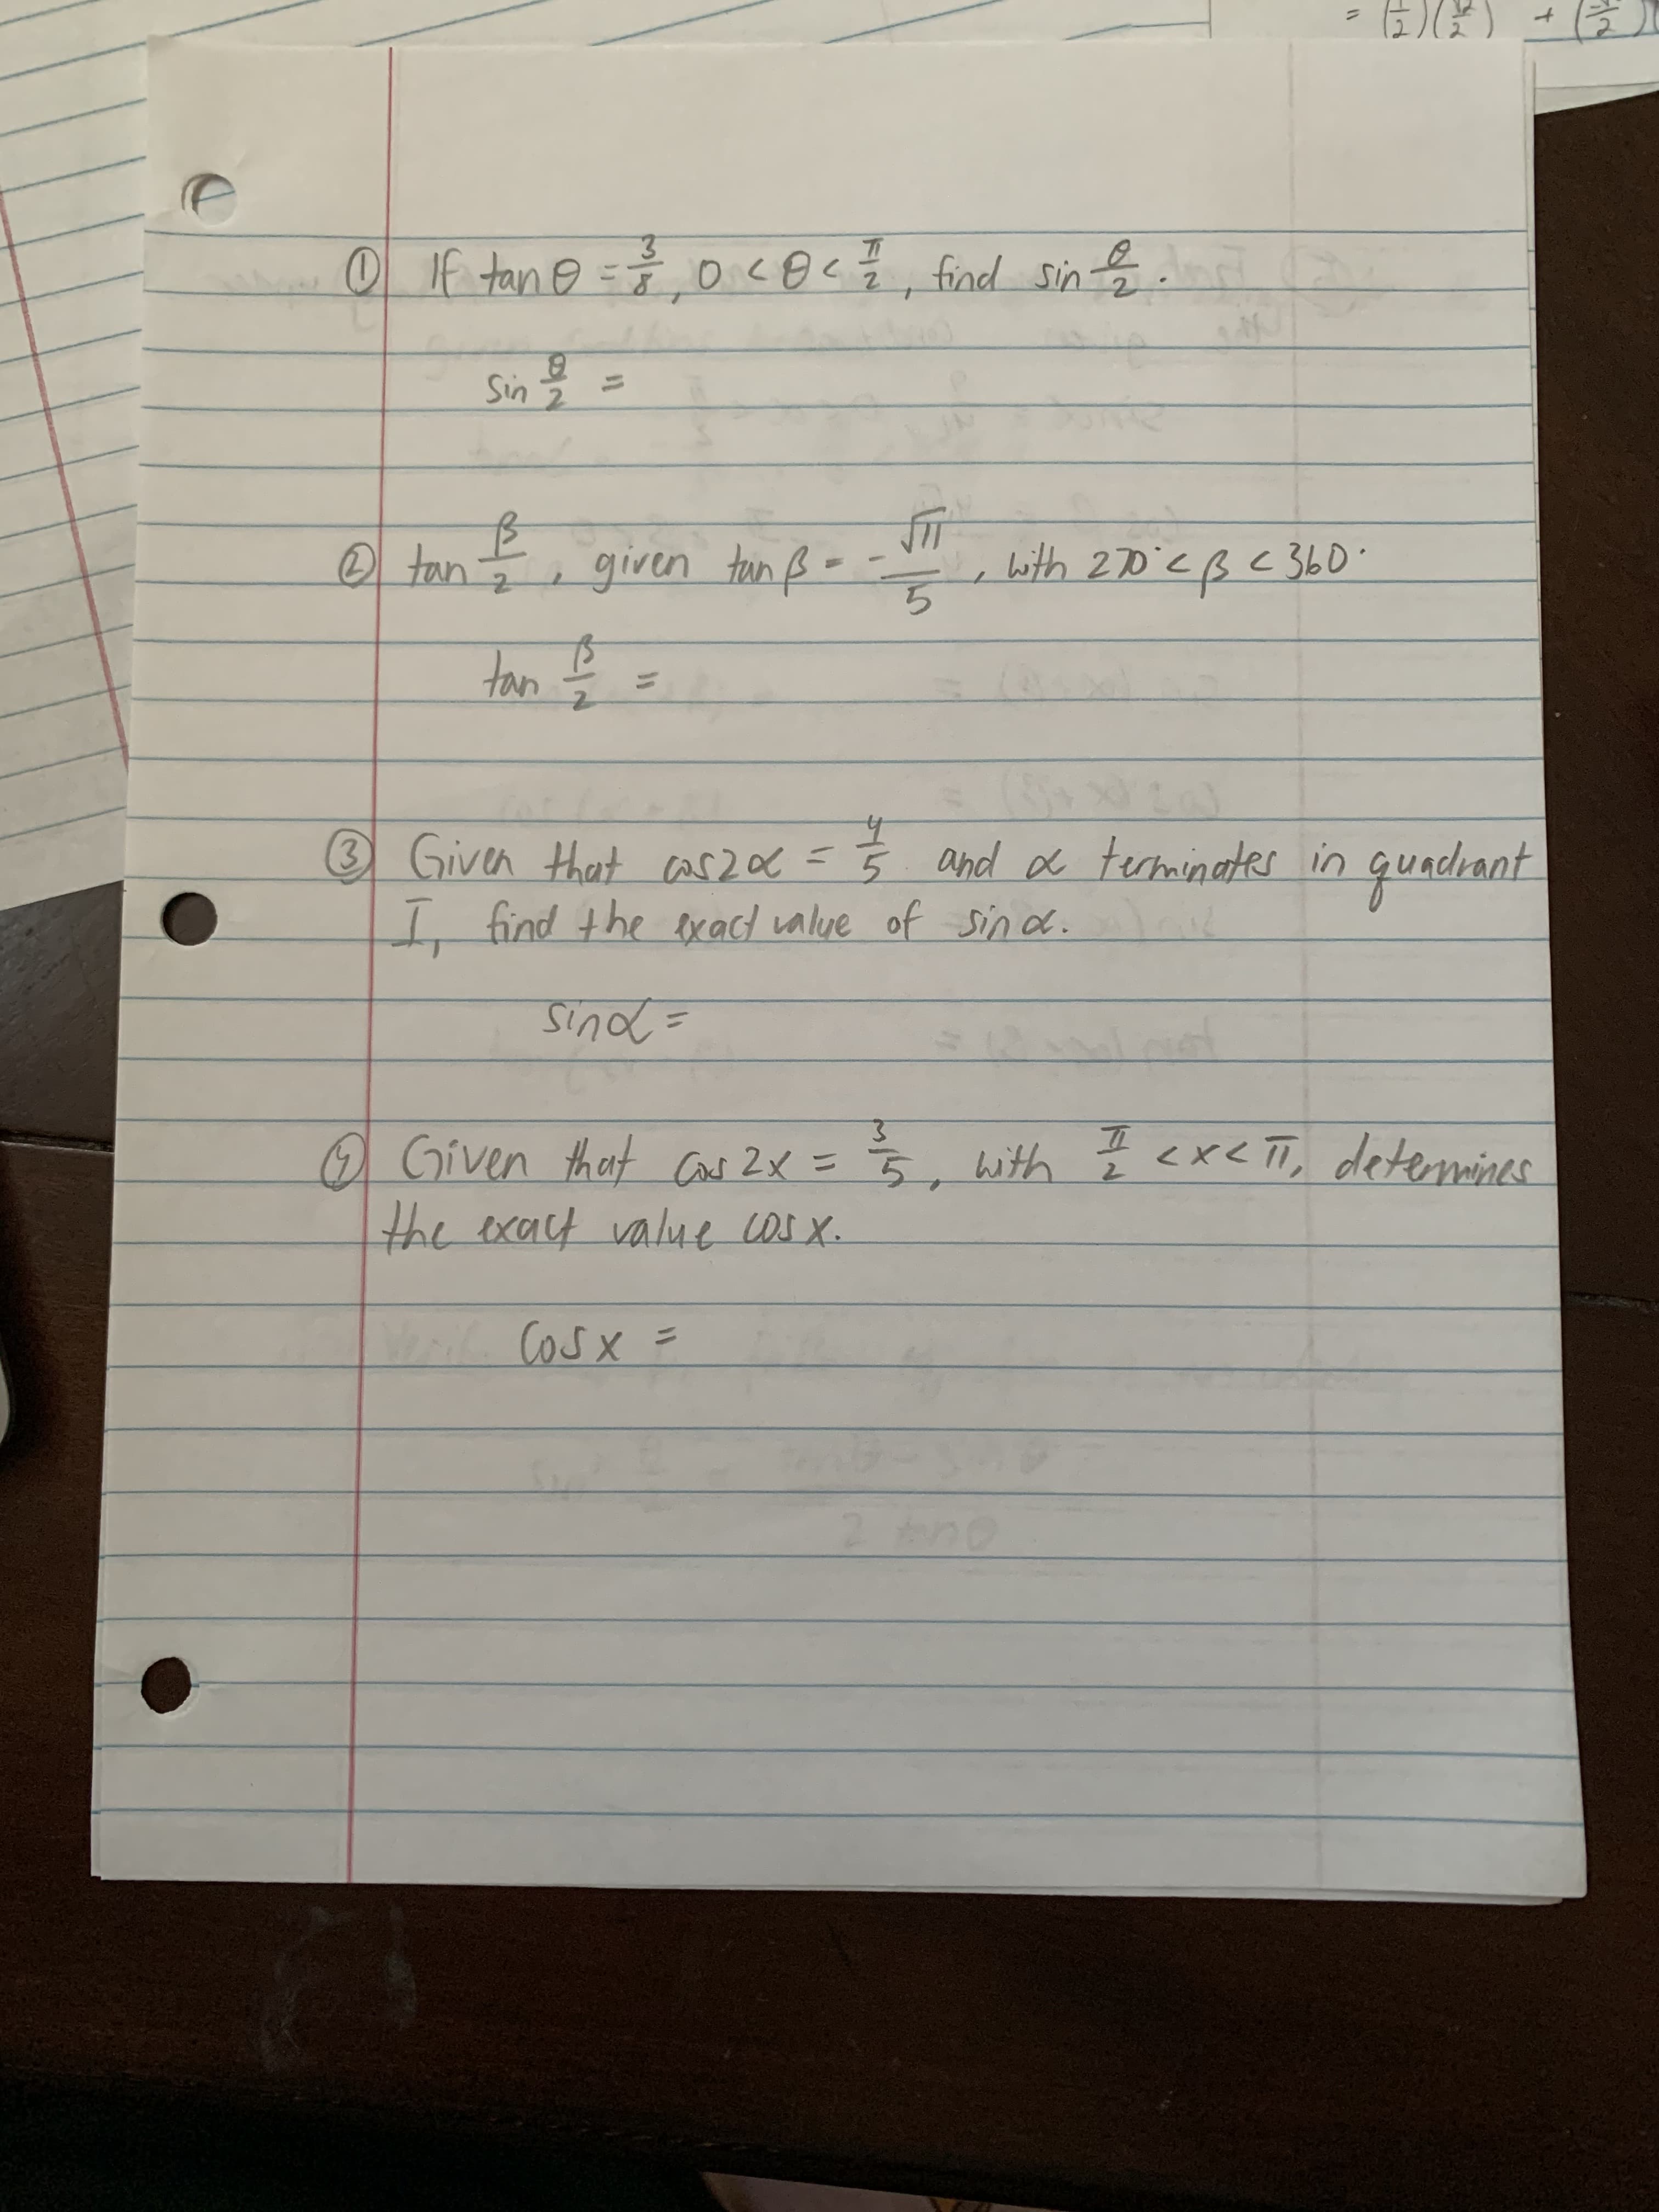 = (1/2)(√2/2) + (
① If tan θ = 3/8, 0 < θ < π/2, find sin θ/2.
sin θ/2 =
② tan β/2, given tan β = -√11/5, with 270° < β < 360°
tan β/2 =
③ Given that cos2α = 4/5 and α terminates in quadrant
I, find the exact value of sin α.
sin α =
④ Given that cos 2x = 3/5, with π/2 < x < π, determines
the exact value cos x.
cos x =